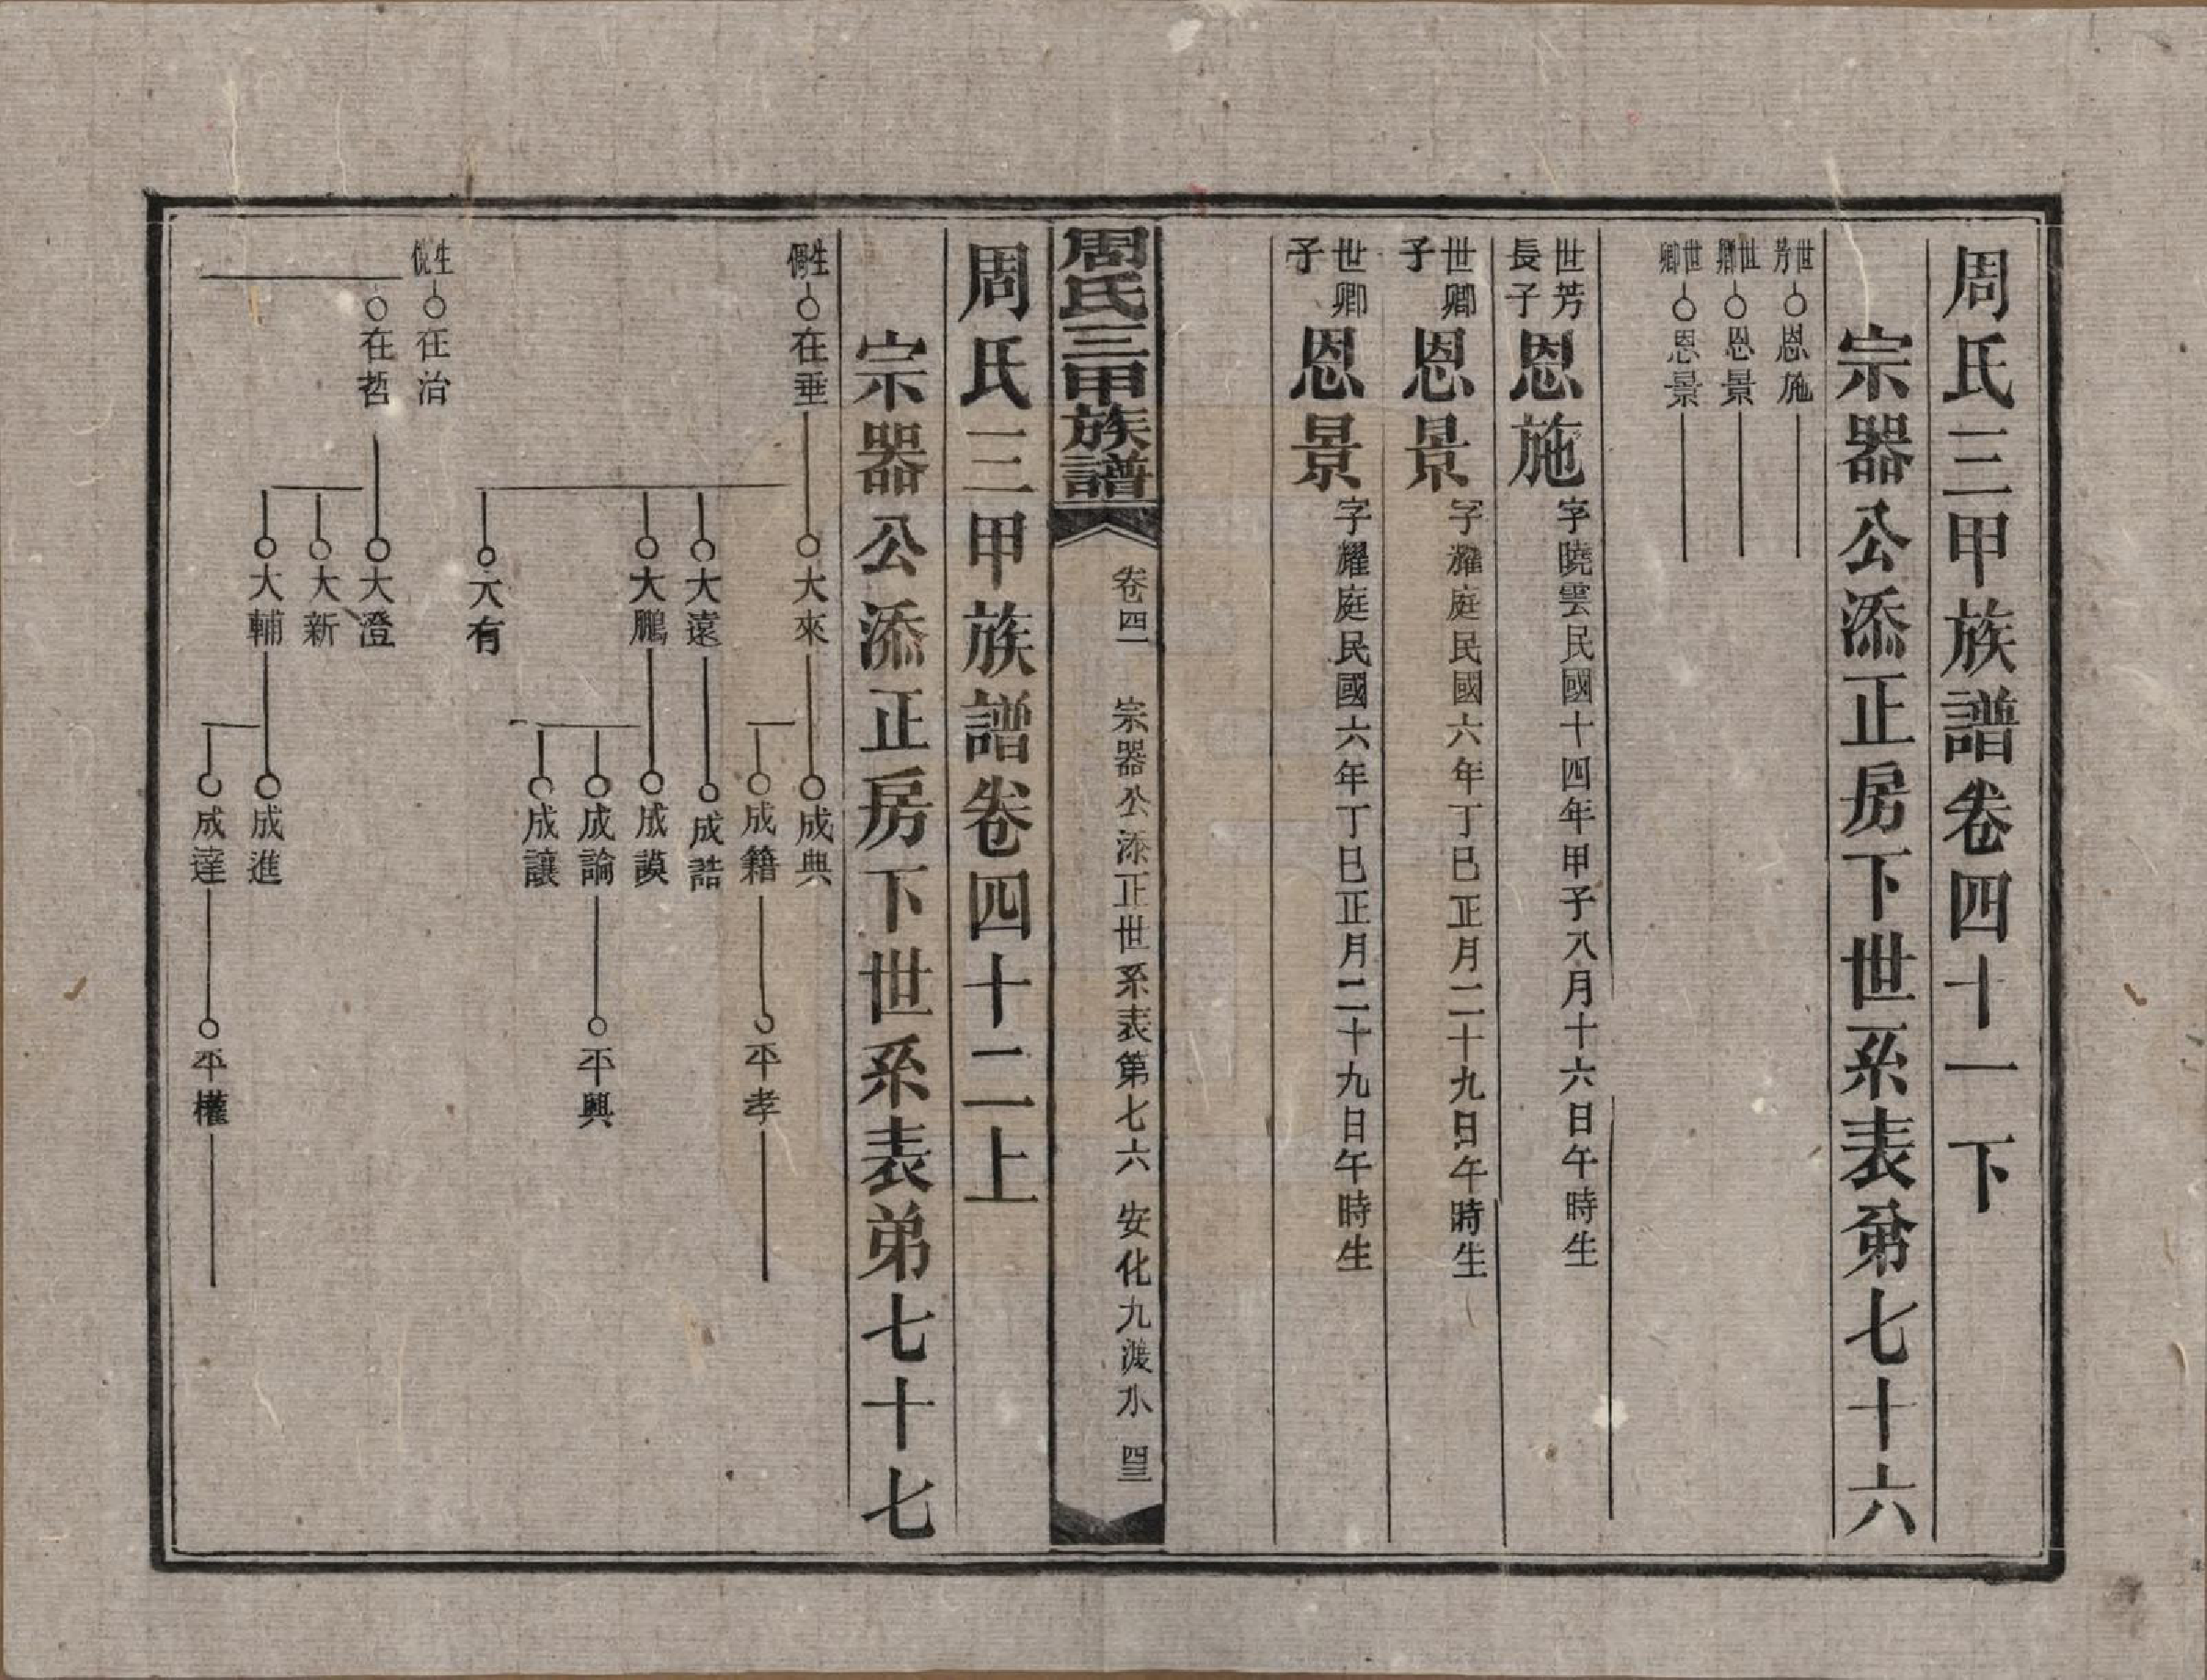 周氏三甲族譜卷四十一下
宗器公添正房下世系表第七十六
世芳 恩施
世卿 恩景
世卿 恩景
世芳長子 恩施 字曉雲民國十四年甲子八月十六日午時生
世卿子 恩景 字耀庭民國六年丁巳正月二十九日午時生
世卿子 恩景 字耀庭民國六年丁巳正月二十九日午時生
周氏三甲族譜 卷四一 宗器公添正世系表第七六 安化九渡水
周氏三甲族譜卷四十二上
宗器公添正房下世系表弟七十七
生 在垂 大來 成典
成籍 平孝
大遠 成誥
大鵬 成謨
成論 平興
成讓
大有
生 在治
在哲 大澄
大新
大輔 成進
成達 平權